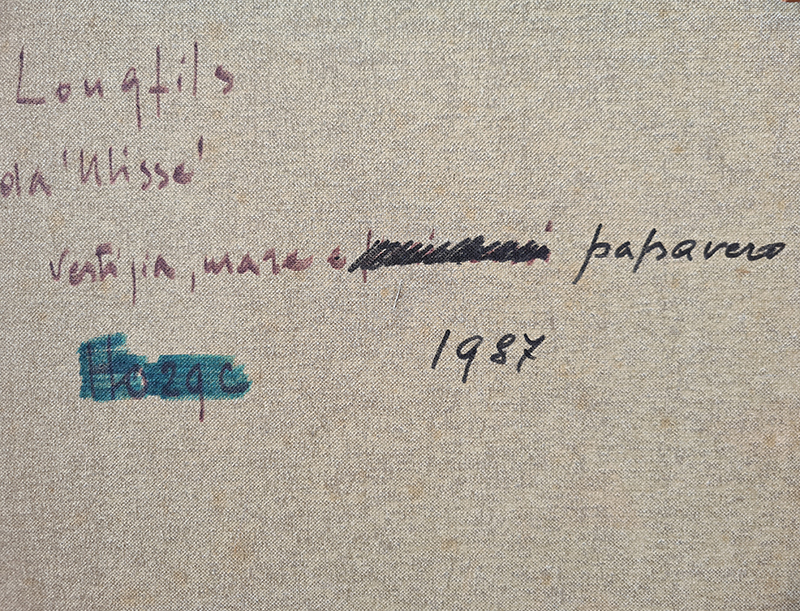 Longfils
da 'Ulisse'
vestigia, mare e papavero
1987